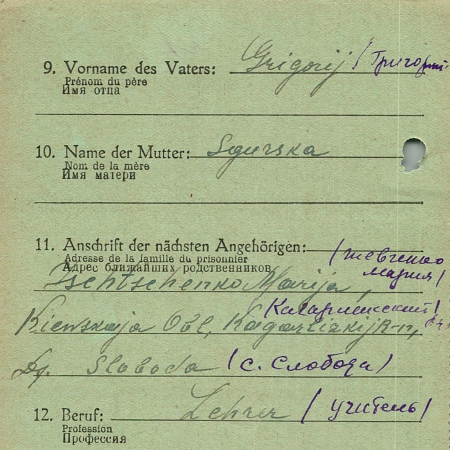 9. Vorname des Vaters: Grigorij (Григорій)
Prénom du père
Имя отца
10. Name der Mutter: Sgurska
Nom de la mère
Имя матери
11. Anschrift der nächsten Angehörigen:
Adresse de la famille du prisonnier
Адрес ближайших родственников
Мария)
Marija,
Kiewskaja Obl, Kagarlizkij R-n,
Slaboda (с. Слобода)
12. Beruf: Lehrer (учитель)
Profession
Профессия